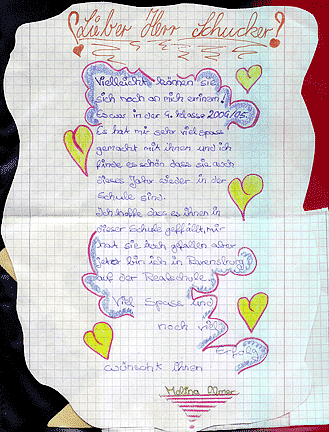 Lieber Herr Schucker!
Vielleicht können sie
sich noch an mich erinern!
Es war in der 4. klasse 2004/05.
Es hat mir sehr viel spass
gemacht mit ihnen und ich
finde es schön dass sie auch
dieses Jahr wieder in der
Schule sind.
Ich hoffe dass es ihnen in
dieser Schule gefällt, mir
hat sie auch gefallen aber
jetzt bin ich in Ravensburg
auf der Realschule.
Viel Spass und
noch viel
Erfolg
wünscht Ihnen